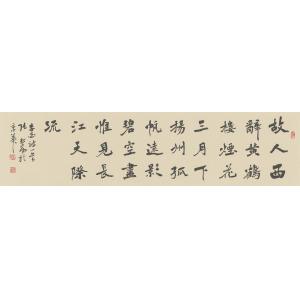 故人西
辭黃鶴
樓煙花
三月下
揚州孤
帆遠影
碧空盡
惟見長
江天際
流
李白詩一首